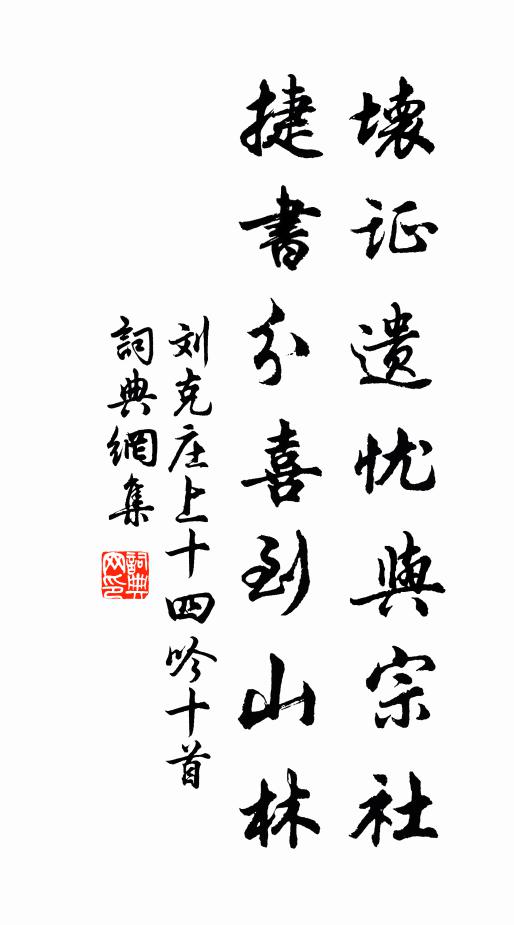 壞証遺忧與宗社
捷書分喜到山林
刘克庄上十四吟十首
詞典網集
詞典
网印